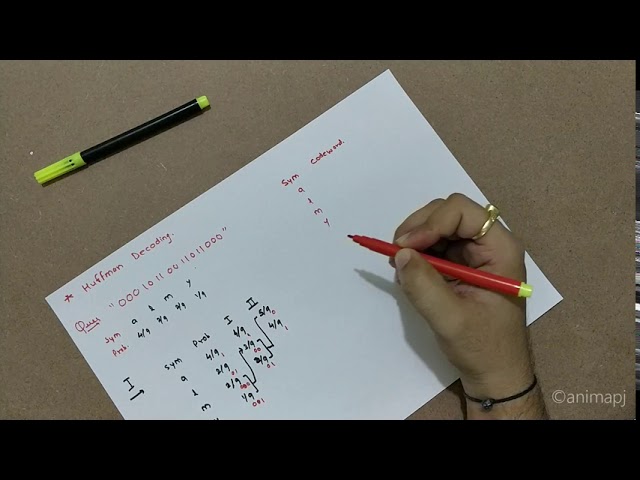 * Huffman Decoding.
Ques "000 10 11 00 11 0 11 000"
Sym a t m y
Prob. 4/9 2/9 2/9 1/9
I → Sym Prob I II
a 4/9 1 4/9 1 5/9 0
t 2/9 01 3/9 00 4/9 1
m 2/9 000 2/9 01
1/9 001
Sym Codeword.
a
t
m
y
©animapj